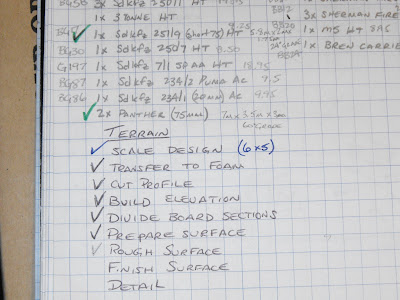 1x 3 TONNE HT
1x Sdkfz 251/9 (short 75) HT 9.25
BG30 1x Sdkfz 250/7 HT 8.50
G197 1x Sdkfz 7/1 SPAA HT 18.95
BG87 1x Sdkfz 234/2 PUMA AC 7.5
BG86 1x Sdkfz 234/1 (20mm) AC 9.95
2x PANTHER (75mm)
3x SHERMAN FIRE
1x M5 HT
1x BREN CARRIE
TERRAIN
SCALE DESIGN (6x5)
TRANSFER TO FOAM
CUT PROFILE
BUILD ELEVATION
DIVIDE BOARD SECTIONS
PREPARE SURFACE
ROUGH SURFACE
FINISH SURFACE
DETAIL